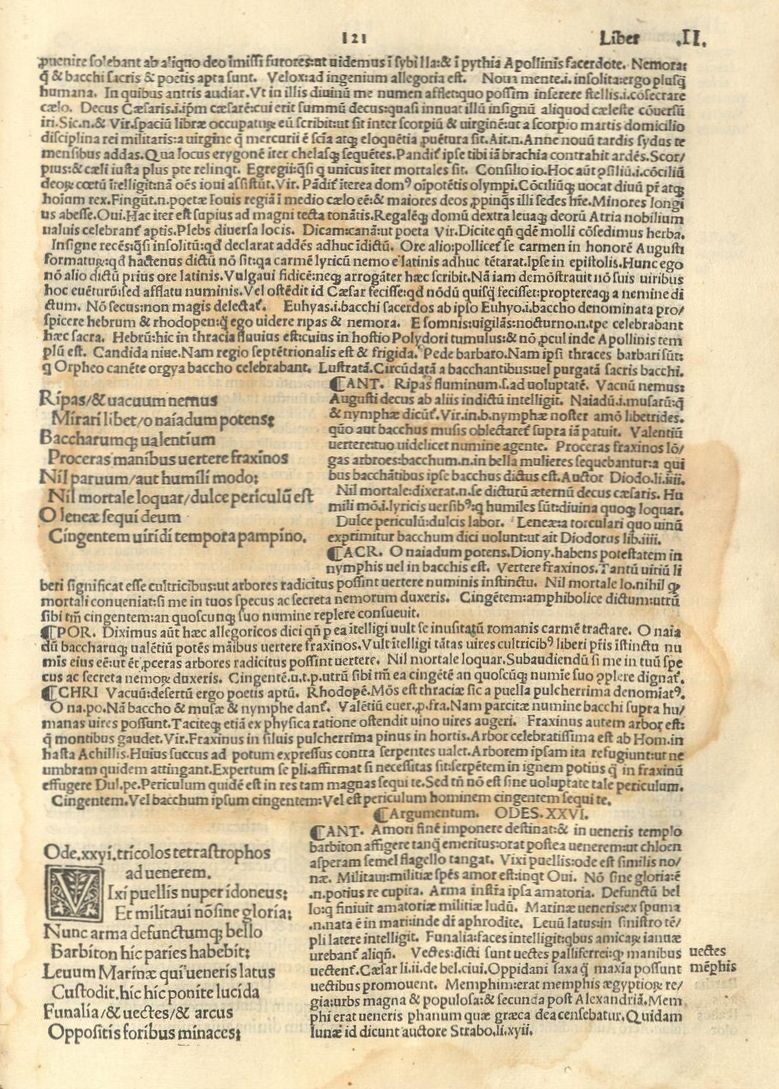 121 Liber .II.
puenire solebant ab aliquo deo imissi furores:ut uidemus i sybilla:& i pythia Apollinis sacerdote. Nemorat
q̃ & bacchi sacris & poetis apta sunt. Velox:ad ingenium allegoria est. Noua mente.i. insolita:ergo plusq̃
humana. In quibus antris audiar. Vt in illis diuinũ me numen afflet:quo possim inserere stellis.i.cõsecrare
cælo. Decus Cæsaris.i.ipm cæsarẽ:cui erit summũ decus:quasi innuat illũ insignũ aliquod cæleste cõuersũ
iri. Sic.n.& Vir. spaciũ libræ occupaturũ eũ scribit:ut sit inter scorpiũ & uirginẽ:ut a scorpio martis domicilio
disciplina rei militaris:a uirgine q̃ mercurii ẽ scĩa atq; eloquẽtia puẽtura sit. Ait.n. Anne nouũ tardis sydus te
mensibus addas. Qua locus erygonẽ iter chelasq; sequẽtes. Pandit̃ ipse tibi iã brachia contrahit ardẽs. Scor/
pius:& cæli iusta plus pte relinqt. Egregii:q̃si q̃ unicus iter mortales sit. Consilio io. Hoc aũt ꝯsiliũ.i.cõciliũ
deoꝝ cœtũ ĩtelligit:nã oẽs ioui assistũt. Vir. Pãdit̃ ĩterea domꝰ oĩpotẽtis olympi. Cõciliũq; uocat diuũ pr̃ atq;
hoĩum rex. Fingũt.n. poetæ Iouis regiã ĩ medio cælo eẽ:& maiores deos ꝓpinqs illi sedes hr̃e. Minores longi
us abesse. Oui. Hac iter est supius ad magni tecta tonãtis. Regalẽq; domũ dextra leuaq; deorũ Atria nobilium
ualuis celebrant̃ aptis. Plebs diuersa locis. Dicam:canã:ut poeta Vir. Dicite qñ qdẽ molli cõsedimus herba.
Insigne recẽs:q̃si insolitũ:qđ declarat addẽs adhuc ĩdictũ. Ore alio:pollicet̃ se carmen in honorẽ Augusti
formaturũ:qđ hactenus dictũ nõ sit:qa carmẽ lyricũ nemo e latinis adhuc tẽtarat. Ipse in epistolis. Hunc ego
nõ alio dictũ prius ore latinis. Vulgaui fidicẽ:neq; arrogãter hæc scribit. Nã iam demõstrauit nõ suis uiribus
hoc euẽturũ:sed afflatu numinis. Vel ostẽdit id Cæsar fecisse:qđ nõdũ quisq̃ fecisset:proptereaq; a nemine di
ctum. Nõ secus:non magis delectat̃. Euhyas.i.bacchi sacerdos ab ipso Euhyo.i.baccho denominata pro/
spicere hebrum & rhodopen:q̃ ego uidere ripas & nemora. E somnis:uigilãs:nocturno.n.tpe celebrabant
hæc sacra. Hebrũ:hic in thracia fluuius est:cuius in hostio Polydori tumulus:& nõ ꝓcul inde Apollinis tem
plũ est. Candida niue. Nam regio septẽtrionalis est & frigida. Pede barbaro. Nam ipsi thraces barbari sũt:
q Orpheo canẽte orgya baccho celebrabant. Lustratã. Circũdatã a bacchantibus:uel purgatã sacris bacchi.
Ripas/& uacuum nemus
Mirari libet/o naiadum potens:
Baccharumq; ualentium
Proceras manibus uertere fraxinos
Nil paruum/aut humili modo:
Nil mortale loquar/dulce periculũ est
O lenæe sequi deum
Cingentem uiridi tempora pampino.
¶CANT. Ripas fluminum.s.ad uoluptatẽ. Vacuũ nemus:
Augusti decus ab aliis indictũ intelligit. Naiadũ.i.musarũ:q̃
& nymphæ dicũt̃. Vir.in.b.nymphæ noster amõ libetrides.
quo aut bacchus musis oblectaret̃ supra iã patuit. Valentiũ
uertere:tuo uidelicet numine agente. Proceras fraxinos lõ/
gas arbroes:bacchum.n.in bella mulieres sequebantur:a qui
bus bacchãtibus ipse bacchus dictus est. Auctor Diodo.li.iiii.
Nil mortale:dixerat.n.se dicturũ æternũ decus cæsaris. Hu
mili mõ.i.lyricis uersibꝰ:q humiles sũt:diuina quoq; loquar.
Dulce periculũ:dulcis labor. Lenæe:a torculari quo uinũ
exprimitur bacchum dici uolunt:ut ait Diodorus lib.iiii.
¶ACR. O naiadum potens. Diony. habens potestatem in
nymphis uel in bacchis est. Vertere fraxinos. Tantũ uiriũ li
beri significat esse cultricibus:ut arbores radicitus possint uertere numinis instinctu. Nil mortale lo.nihil q̃
mortali conueniat:si me in tuos specus ac secreta nemorum duxeris. Cingẽtem:amphibolice dictum:utrũ
sibi tm̃ cingentem:an quoscunq; suo numine replere consueuit.
¶POR. Diximus aũt hæc allegoricos dici qñ p ea ĩtelligi uult se inusitatũ romanis carmẽ tractare. O naia
dũ baccharuq; ualẽtiũ potẽs mãibus uertere fraxinos. Vult ĩtelligi tãtas uires cultricibꝰ liberi pr̃is ĩstinctu nu
mis eius eẽ:ut ẽt ꝓceras arbores radicitus possint uertere. Nil mortale loquar. Subaudiendũ si me in tuũ spe
cus ac secreta nemoꝝ duxeris. Cingentẽ.u.t.p.utrũ sibi tm̃ ea cingẽtẽ an quoscũq; numie suo ꝯplere dignat̃.
¶CHRI Vacuũ:desertũ ergo poetis aptũ. Rhodopẽ. Mõs est thraciæ sic a puella pulcherrima denomiatꝰ.
O na.po. Nã baccho & musæ & nymphe dant̃. Valẽtiũ euer.p.fra. Nam parcitæ numine bacchi supra hu/
manas uires possunt. Taciteq; etiã ex physica ratione ostendit uino uires augeri. Fraxinus autem arbor est:
q̃ montibus gaudet. Vir. Fraxinus in siluis pulcherrima pinus in hortis. Arbor celebratissima est ab Hom. in
hasta Achillis. Huius succus ad potum expressus contra serpentes ualet. Arborem ipsam ita refugiunt:ut ne
umbram quidem attingant. Expertum se pli.affirmat si necessitas sit:serpẽtem in ignem potius q̃ in fraxinũ
effugere Dul.pe. Periculum quidẽ est in res tam magnas sequi te. Sed tñ nõ est sine uoluptate tale periculum.
Cingentem. Vel bacchum ipsum cingentem:Vel est periculum hominem cingentem sequi te.
¶Argumentum. ODES. XXVI.
Ode.xxyi.tricolos tetrastrophos
ad uenerem.
VIxi puellis nuper idoneus:
Et militaui nõsine gloria:
Nunc arma defunctumq; bello
Barbiton hic paries habebit:
Leuum Marinæ qui ueneris latus
Custodit. hic hic ponite lucida
Funalia/& uectes/& arcus
Oppositis foribus minaces:
¶CANT. Amori finẽ imponere destinat:& in ueneris templo
barbiton affigere tanq̃ emeritus:orat postea uenerem:ut chloen
asperam semel flagello tangat. Vixi puellis:ode est similis no/
næ. Militaui:militiæ spẽs amor est:inqt Oui. Nõ sine gloria:ẽ
.n.potius re cupita. Arma instr̃a ipsa amatoria. Defunctũ bel
lo:q finiuit amatoriæ militiæ ludũ. Marinæ ueneris:ex spuma
.n.nata ẽ in mari:inde di aphrodite. Leuũ latus:in sinistro tẽ/
pli latere intelligit. Funalia:faces intelligit:qbus amicaꝝ ianuæ
urebant̃ aliqñ. Vectes:dicti sunt uectes palliferrei:q̃ manibus
uectent̃. Cæsar li.ii.de bel.ciui. Oppidani saxa q̃ maxia possunt
uectibus promouent. Memphim:erat memphis ægyptioꝝ re/
gia:urbs magna & populosa:& secunda post Alexandriã. Mem
phi erat ueneris phanum quæ græca dea censebatur. Quidam
lunæ id dicunt auctore Strabo.li.xyii.
uectes
mẽphis